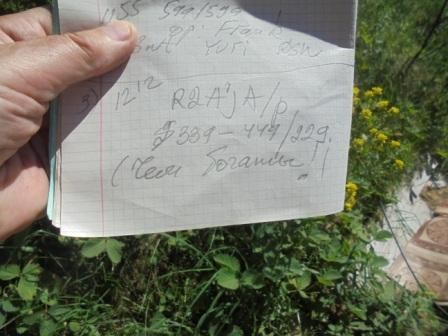 1155 599/599
op. Frank
Yuri
3) 12¹² R2AʹjA/p
539-444/229.
(Чем богаты!!